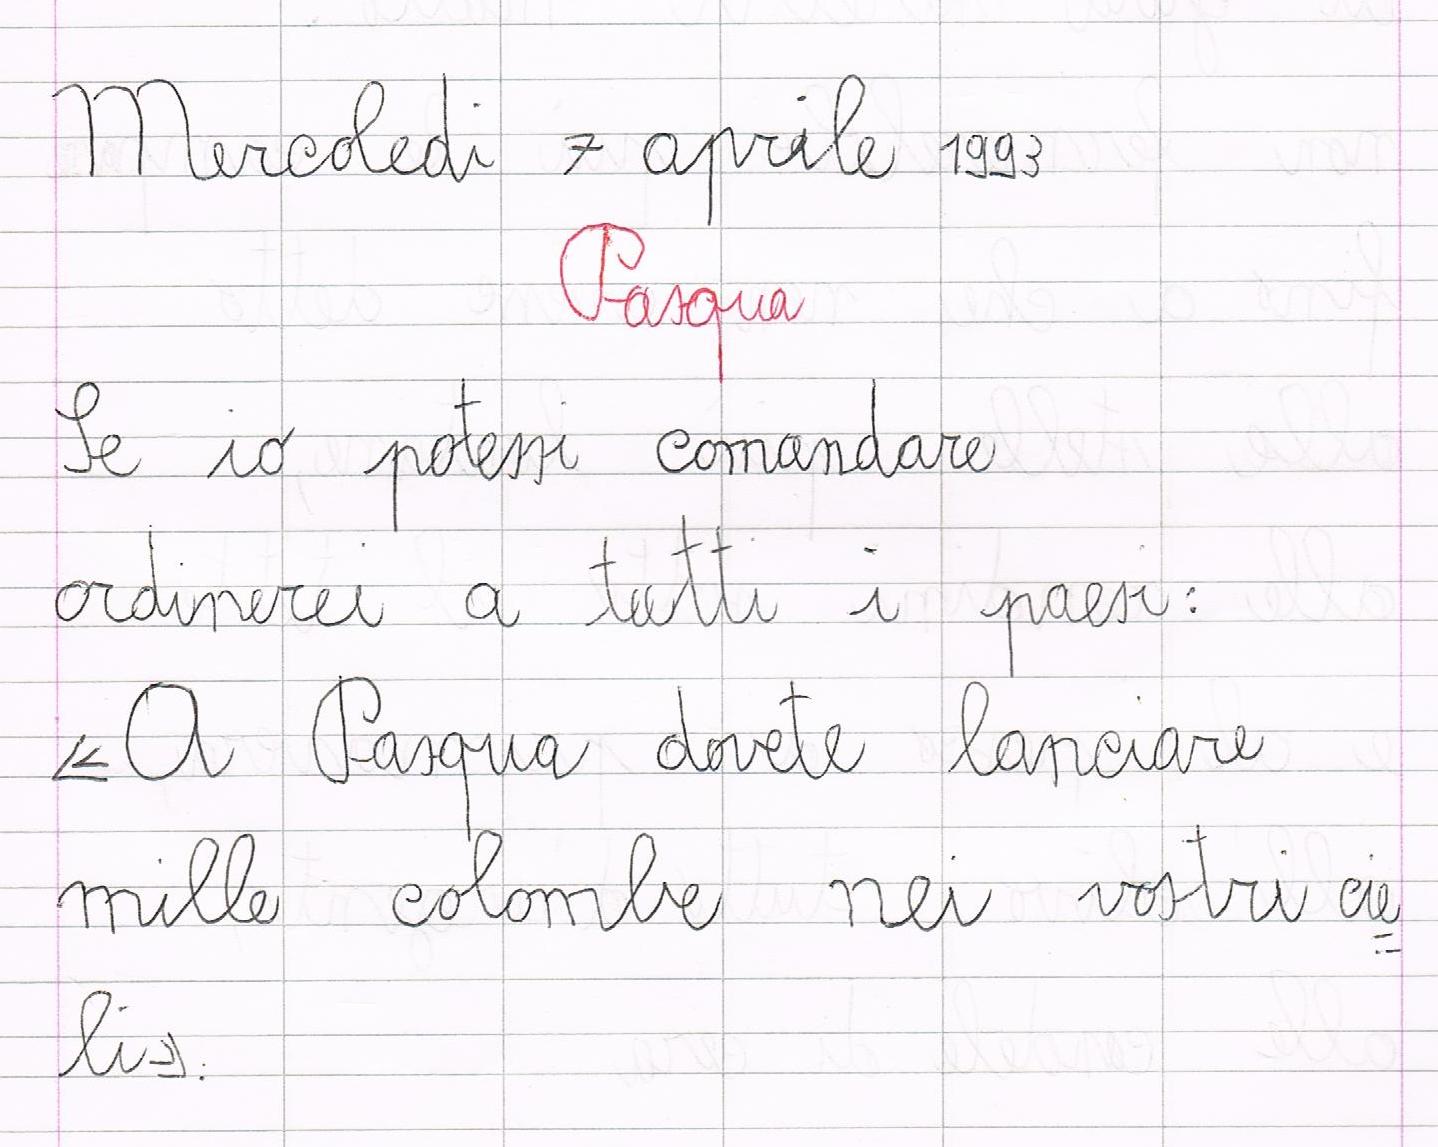 Mercoledi 7 aprile 1993
Pasqua
Se io potessi comandare
ordinerei a tutti i paesi:
«A Pasqua dovete lanciare
mille colombe nei vostri cie=
li».